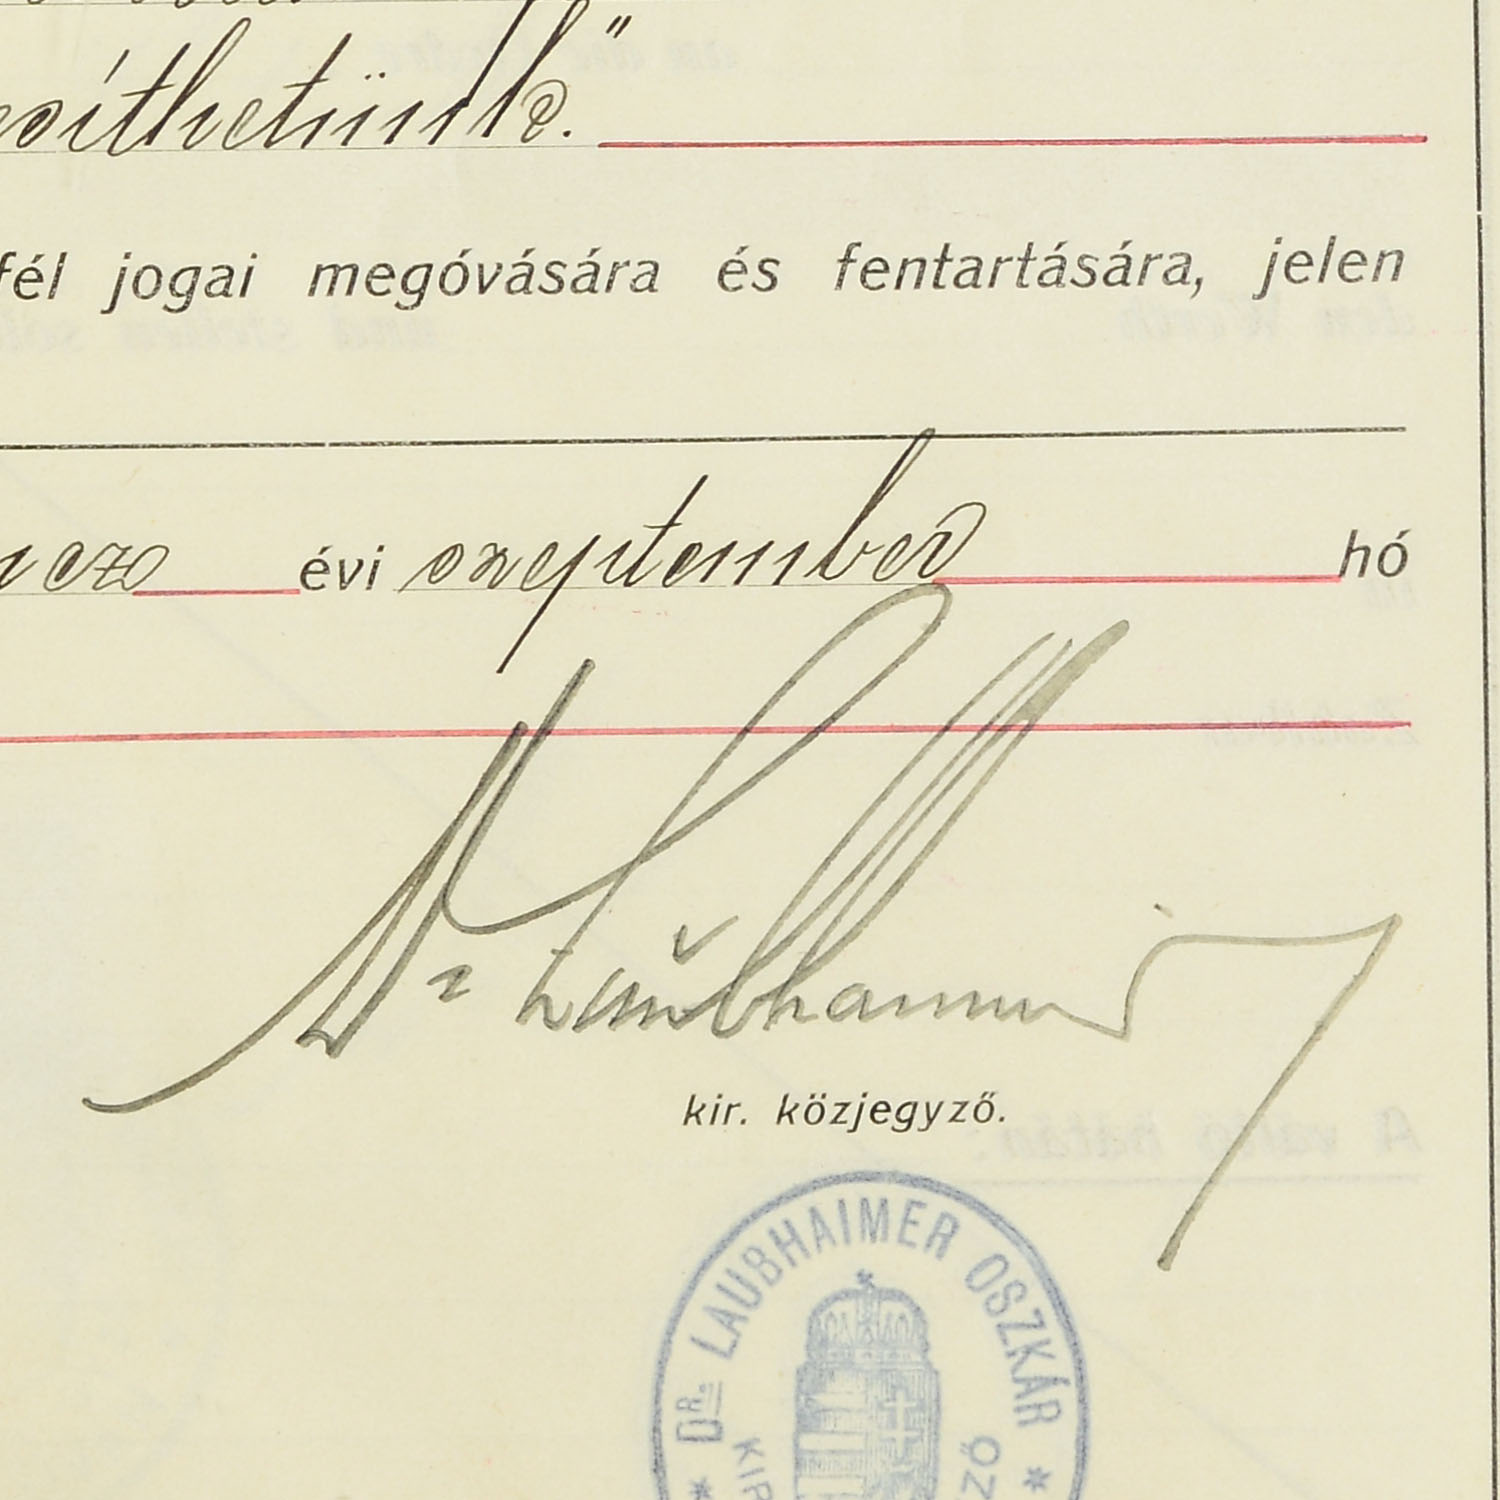 esíthetünk."
fél jogai megóvására és fentartására, jelen
évi szeptember hó
Dr Laubhaimer
kir. közjegyző.
* DR. LAUBHAIMER OSZKÁR *
KIR